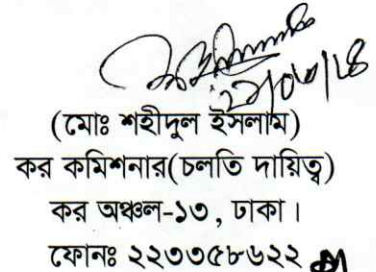 (মোঃ শহীদুল ইসলাম)
কর কমিশনার(চলতি দায়িত্ব)
কর অঞ্চল-১৩, ঢাকা।
ফোনঃ ২২৩৩৫৮৬২২